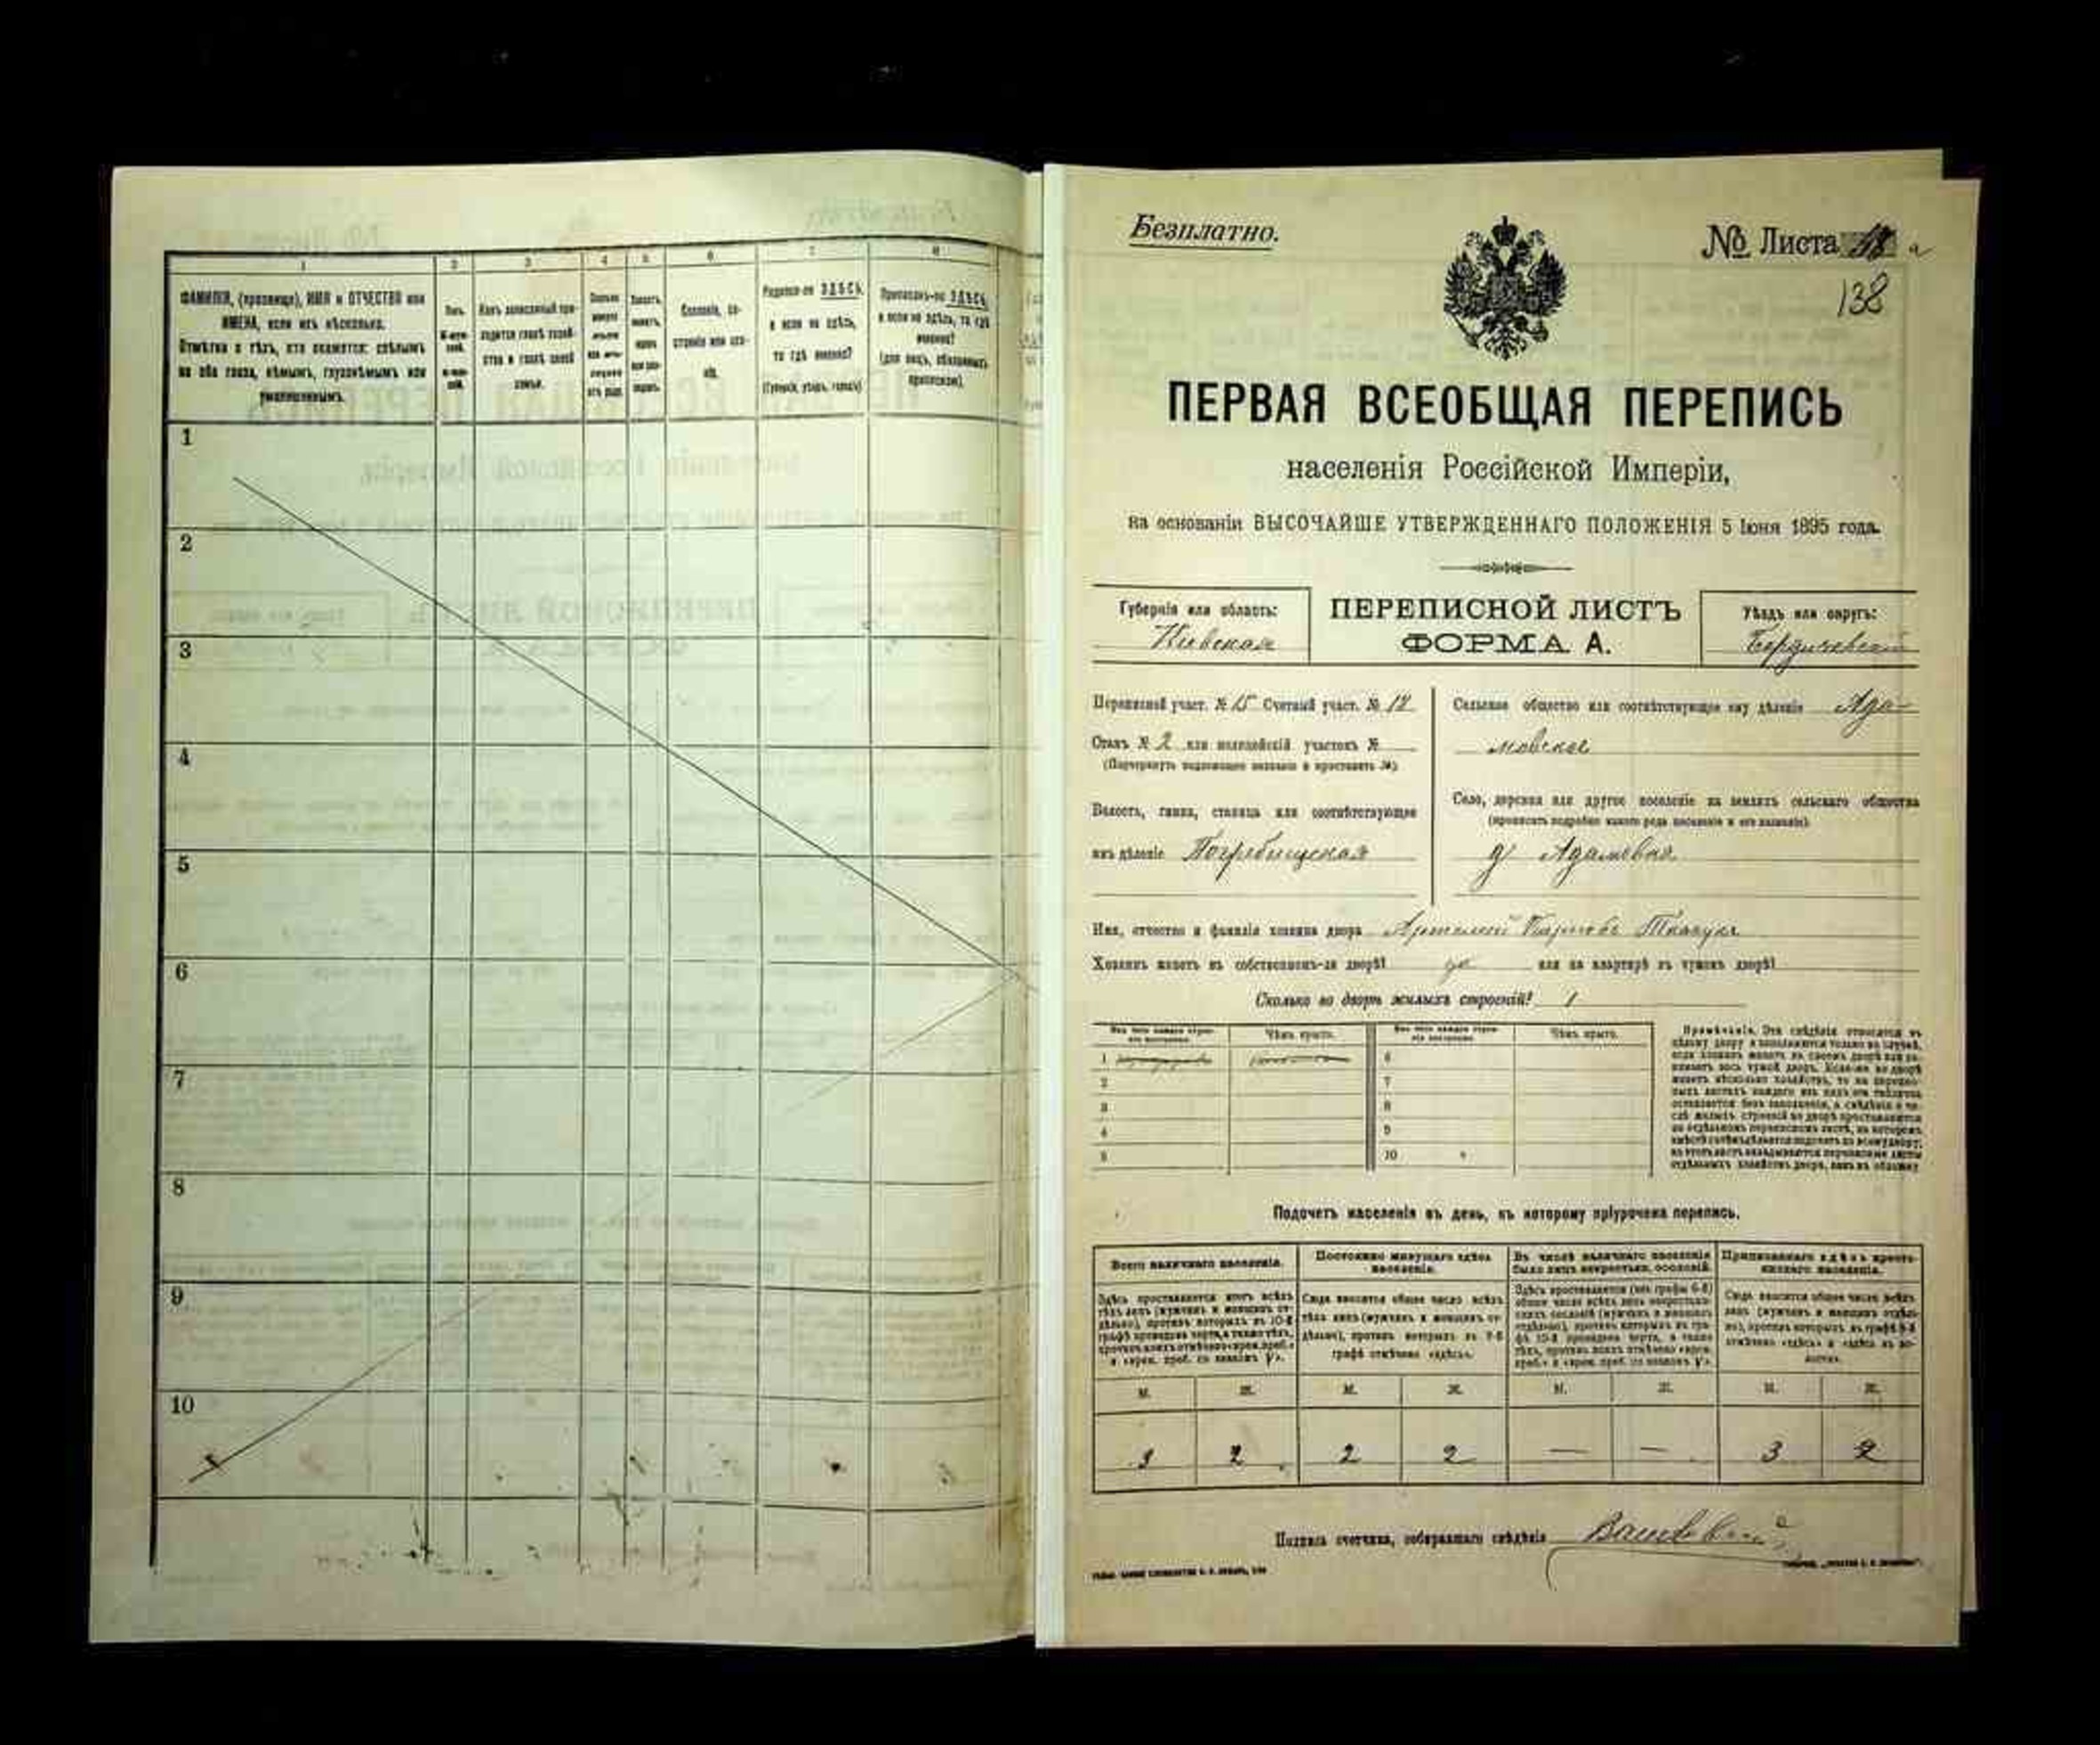 1
2
3
4
5
6
7
8
ФАМИЛІЯ, (прозвище), ИМЯ и ОТЧЕСТВО или
ИМЕНА, если ихъ нѣсколько.
Отмѣтка о тѣхъ, кто окажется: слѣпымъ
на оба глаза, нѣмымъ, глухонѣмымъ или
умалишеннымъ.
Полъ.
Какъ записанный при-
ходится главѣ хозяй-
ства и главѣ своей
семьи.
Сословіе, со-
стояніе или зва-
ніе.
Родился-ли ЗДѢСЬ,
а если не здѣсь,
то гдѣ именно?
(Губернія, уѣздъ, городъ)
Приписанъ-ли ЗДѢСЬ,
а если не здѣсь, то гдѣ
именно?
(для лицъ, обязанныхъ
припискою).
1
2
3
4
5
6
7
8
9
10
Безплатно.
№ Листа
138
ПЕРВАЯ ВСЕОБЩАЯ ПЕРЕПИСЬ
населенія Россійской Имперіи,
на основаніи ВЫСОЧАЙШЕ УТВЕРЖДЕННАГО ПОЛОЖЕНІЯ 5 Іюня 1895 года.
Губернія или область:
Кіевская
ПЕРЕПИСНОЙ ЛИСТЪ
ФОРМА А.
Уѣздъ или округъ:
Бердичевскій
Переписной участ. № 15 Счетный участ. № 12
Станъ № 2 или полицейскій участокъ №
(Подчеркнуть надлежащее названіе и проставить №).
Волость, гмина, станица или соотвѣтствующее
имъ дѣленіе Погребищская
Сельское общество или соотвѣтствующее ему дѣленіе Ада-
мовское
Село, деревня или другое поселеніе на земляхъ сельскаго общества
(прописать подробно какого рода поселеніе и его названіе).
д. Адамовка
Имя, отчество и фамилія хозяина двора Артемій
Хозяинъ живетъ въ собственномъ-ли дворѣ? да или на квартирѣ въ чужомъ дворѣ?
Сколько во дворѣ жилыхъ строеній? 1
Изъ чего каждое строе-
ніе построено.
Чѣмъ крыто.
Изъ чего каждое строе-
ніе построено.
Чѣмъ крыто.
1
2
3
4
5
6
7
8
9
10
Примѣчаніе. Эти свѣдѣнія относятся къ
цѣлому двору и пополняются только въ случаѣ,
если хозяинъ живетъ въ своемъ дворѣ или за-
нимаетъ весь чужой дворъ. Если-же во дворѣ
живетъ нѣсколько хозяйствъ, то на перепис-
ныхъ листахъ каждаго изъ нихъ эта табличка
оставляется безъ заполненія, а свѣдѣнія о чи-
слѣ жилыхъ строеній во дворѣ проставляются
на отдѣльномъ переписномъ листѣ, на которомъ
вмѣстѣ съ тѣмъ дѣлается подсчетъ по всему двору;
въ этотъ листъ вкладываются переписные листы
отдѣльныхъ хозяйствъ двора, какъ въ обложку.
Подсчетъ населенія въ день, къ которому пріурочена перепись.
Всего наличнаго населенія.
Здѣсь проставляется итогъ всѣхъ
тѣхъ лицъ (мужчинъ и женщинъ от-
дѣльно), противъ которыхъ въ 10-й
графѣ проведена черта, а также тѣхъ,
Постоянно живущаго здѣсь
населенія.
Сюда вносится общее число всѣхъ
тѣхъ лицъ (мужчинъ и женщинъ от-
дѣльно), противъ которыхъ въ 9-й
графѣ отмѣчено «здѣсь».
Въ числѣ наличнаго населенія
было лицъ некрестьян. сословій.
Приписаннаго здѣсь кресть-
янскаго населенія.
Сюда вносится общее число всѣхъ
лицъ (мужчинъ и женщинъ отдѣль-
но), противъ которыхъ въ графѣ 8-й
отмѣчено «здѣсь» и «здѣсь въ во-
лости».
М. Ж. М. Ж. М. Ж. М. Ж.
3 2 2 2 — — 3 2
Подпись счетчика, собиравшаго свѣдѣнія